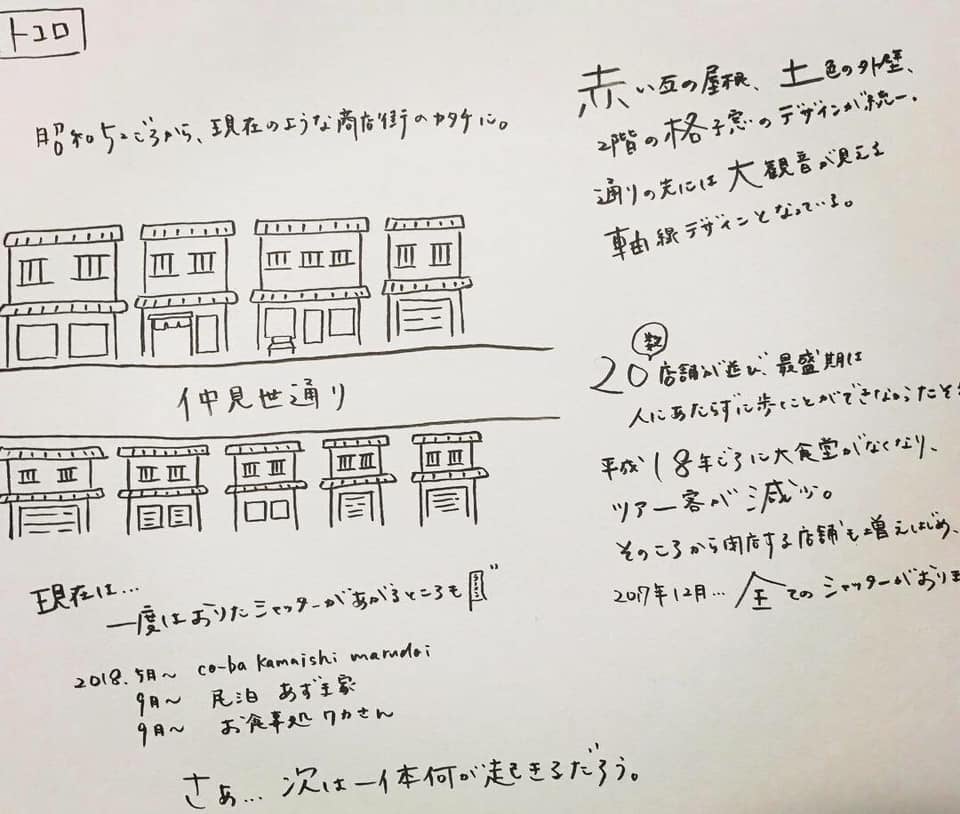 トコロ
昭和52ごろから、現在のような商店街のカタチに。
赤い瓦の屋根、土色の外壁、
2階の格子窓のデザインが統一。
通りの先には大観音が見える
軸線デザインとなっている。
仲見世通り
数
20店舗が並び、最盛期は
人にあたらずに歩くことができなかったそ
平成18年ごろに大食堂がなくなり、
ツアー客が減少。
そのころから閉店する店舗も増えはじめ、
2017年12月… 全てのシャッターがおりま
現在は…
一度はおりたシャッターがあがるところも
2018. 5月〜 co-ba kamaishi marudai
9月〜 民泊 あずま家
9月〜 お食事処 ワカさん
さぁ… 次は一体何が起きるだろう。